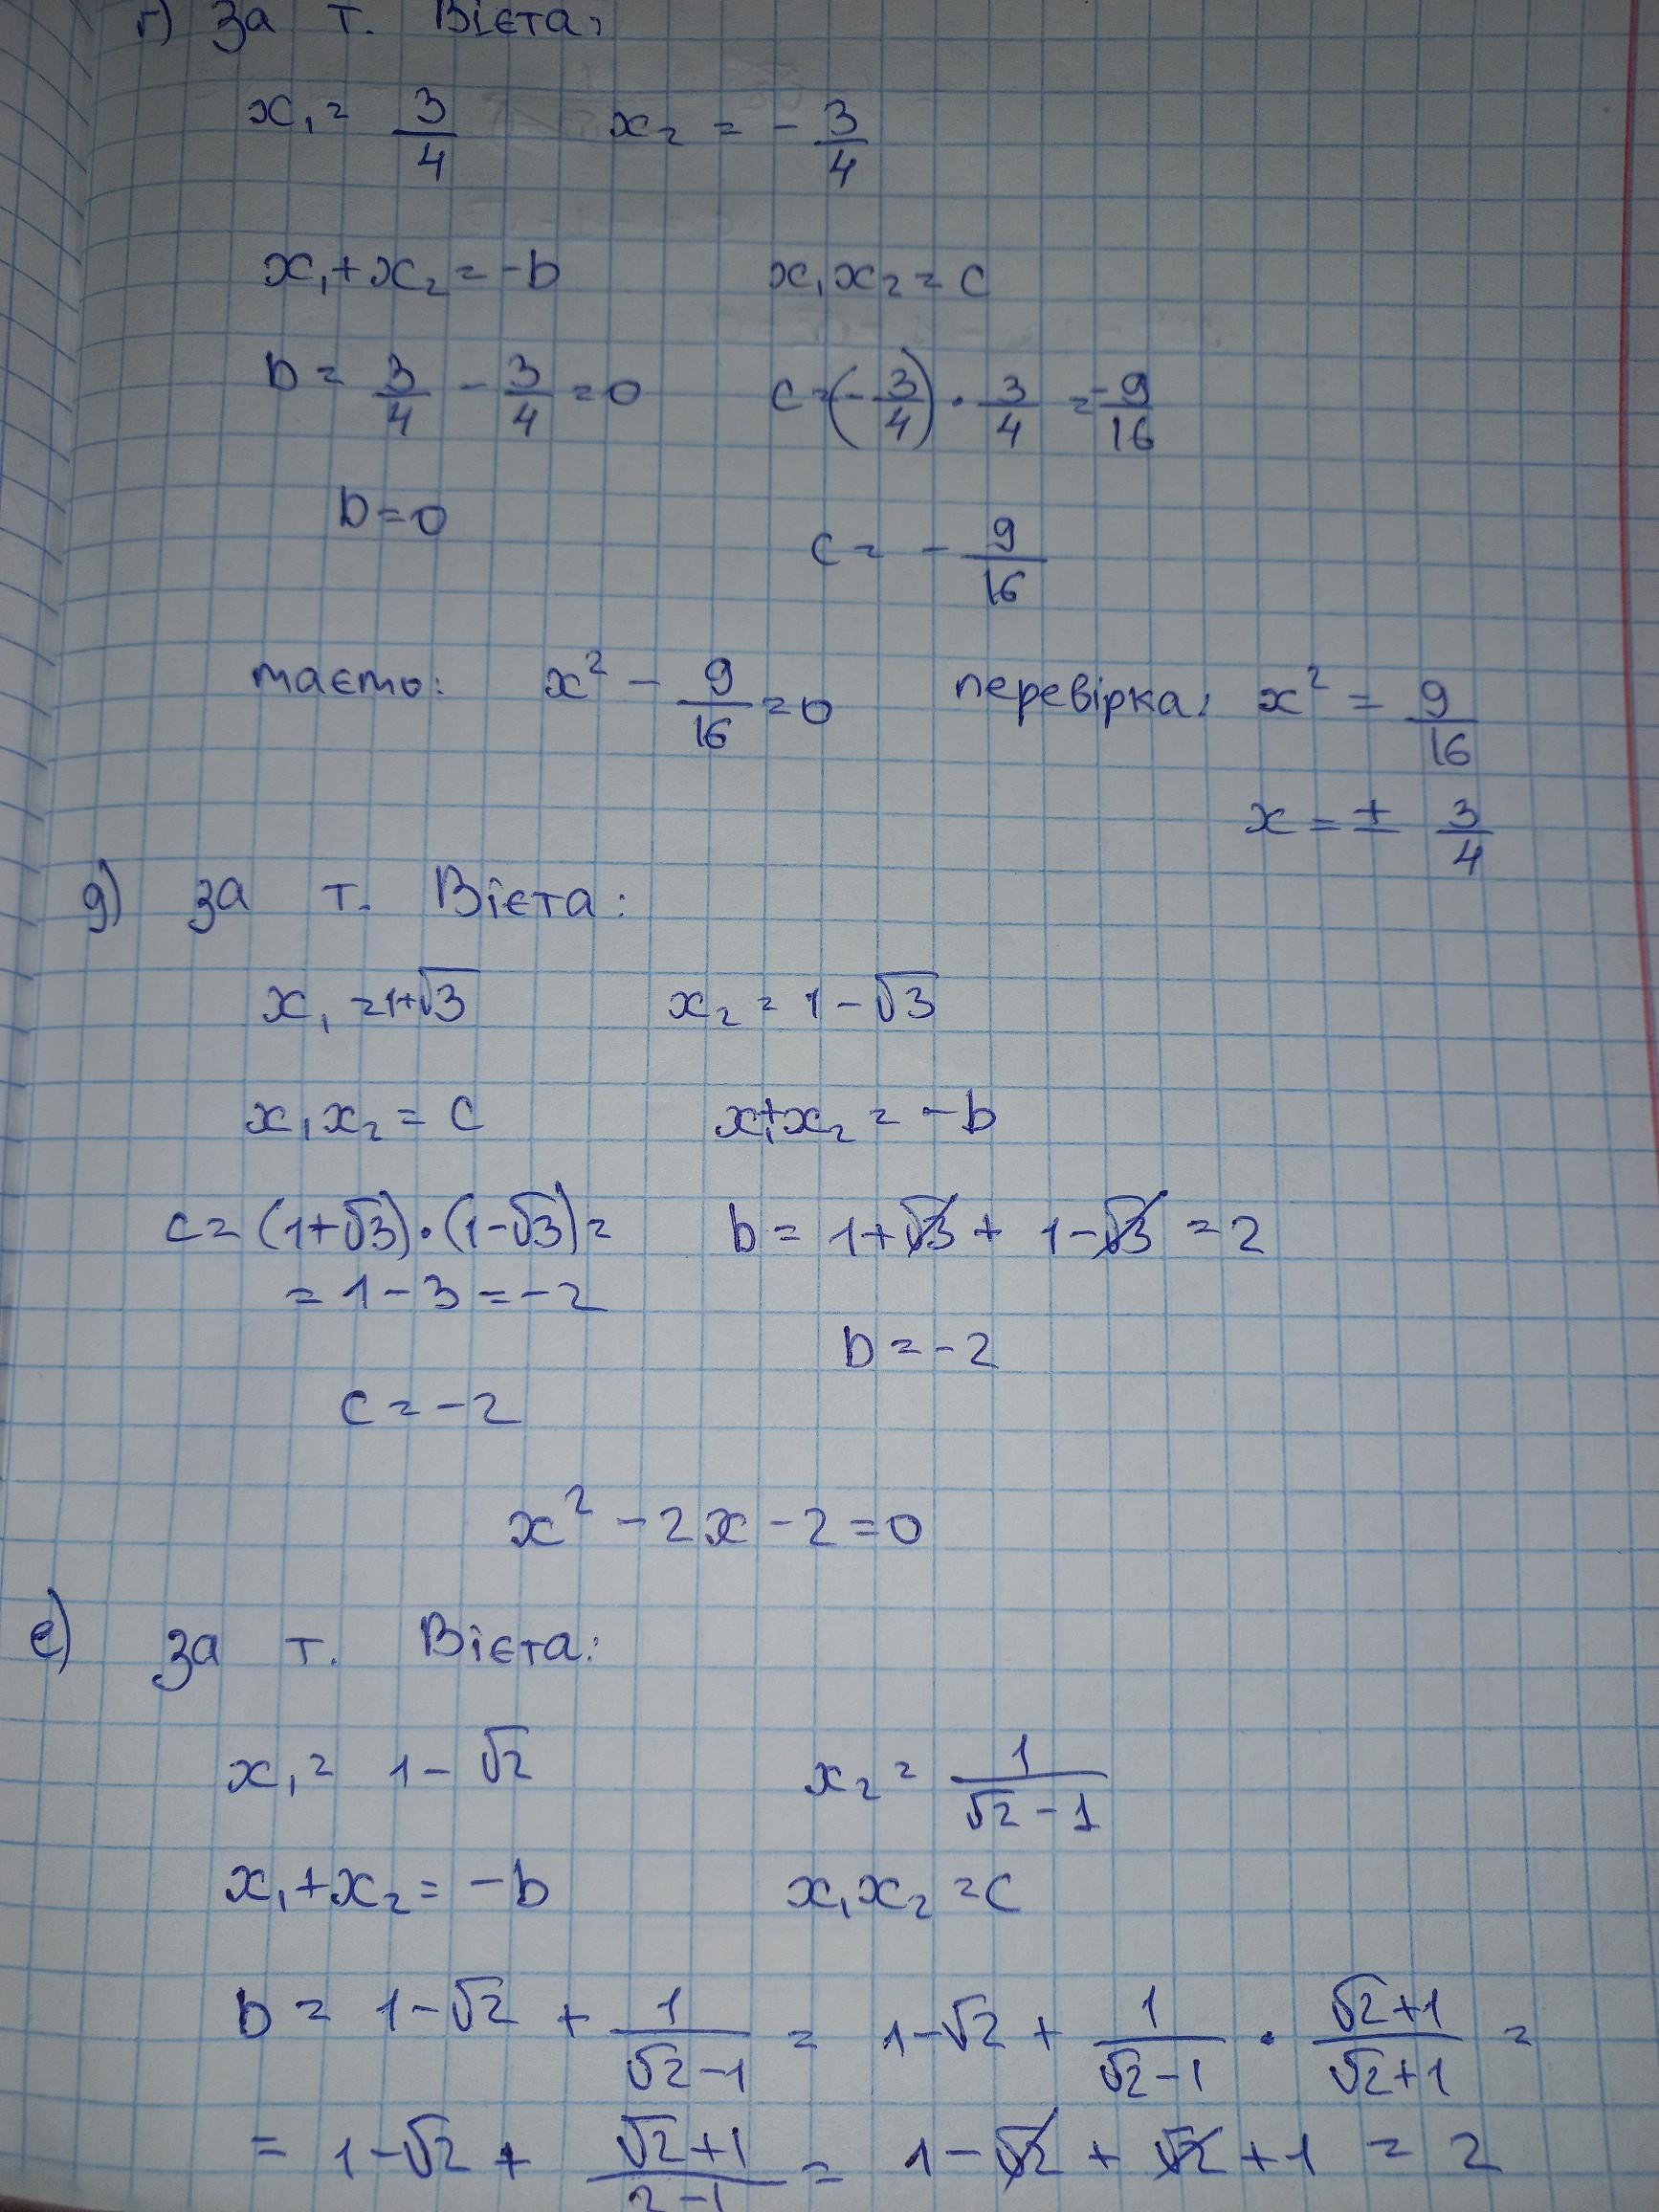 г) За т. Вієта:
x₁ = 3/4 x₂ = - 3/4
x₁+x₂ = -b x₁x₂ = c
b = 3/4 - 3/4 = 0 c = (-3/4) · 3/4 = -9/16
b = 0
c = - 9/16
маємо: x² - 9/16 = 0 перевірка: x² = 9/16
x = ± 3/4
д) За т. Вієта:
x₁ = 1+√3 x₂ = 1-√3
x₁x₂ = c x₁+x₂ = -b
c = (1+√3)·(1-√3) = b = 1+√3 + 1-√3 = 2
= 1-3 = -2
b = -2
c = -2
x² - 2x - 2 = 0
е) За т. Вієта:
x₁ = 1-√2 x₂ = 1/(√2-1)
x₁+x₂ = -b x₁x₂ = c
b = 1-√2 + 1/(√2-1) = 1-√2 + 1/(√2-1) · (√2+1)/(√2+1) =
= 1-√2 + (√2+1)/(2-1) = 1-√2 + √2+1 = 2